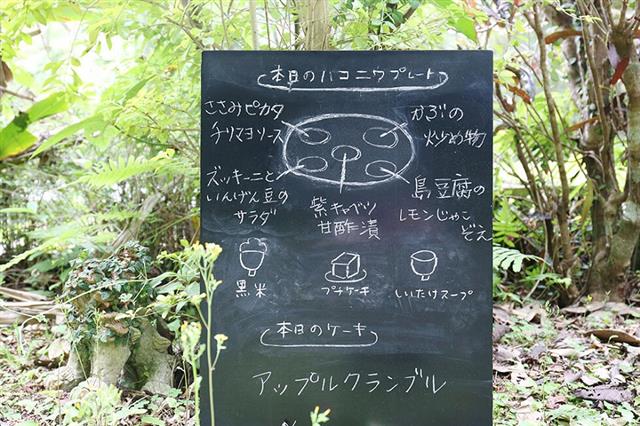 本日のハコニワプレート
ささみピカタ
チリマヨソース
かぶの
炒め物
ズッキーニと
いんげん豆の
サラダ
紫キャベツ
甘酢漬
島豆腐の
レモンじゃこ
ぞえ
黒米
プチケーキ
しいたけスープ
本日のケーキ
アップルクランブル